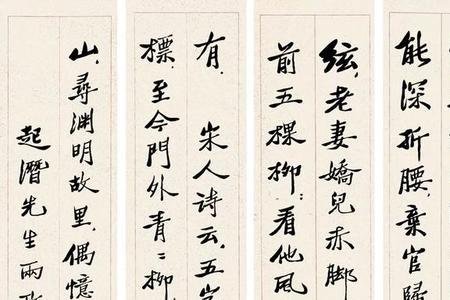 能深折腰，棄官歸
絃，老妻嬌兒赤腳
前五棵柳，看他風
有，宋人詩云，五
標，至今門外青〻柳
山，尋淵明故里，偶憶
起潛先生兩